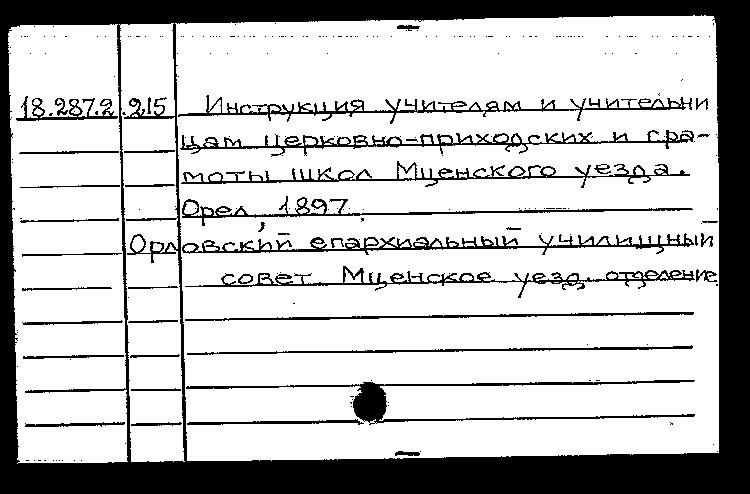 18.287.2 215 Инструкция учителям и учительни
цам церковно-приходских и гра-
моты школ Мценского уезда.
Орел, 1897.
Орловский епархиальный училищный
совет Мценское уезд. отделение